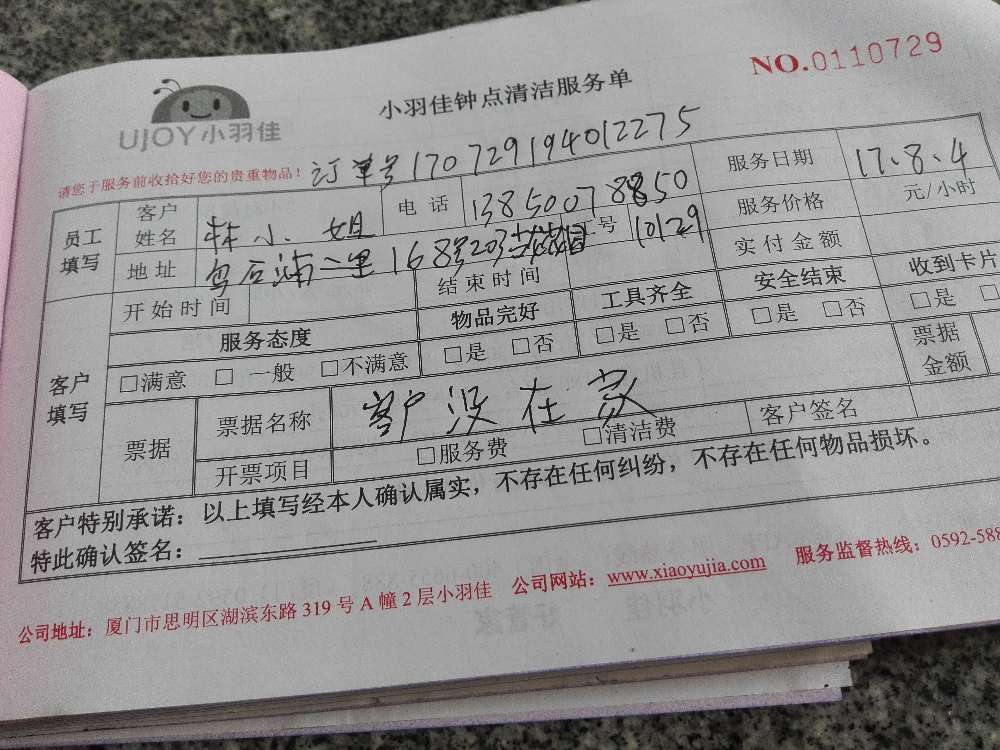 NO.0110729
UJOY小羽佳
小羽佳钟点清洁服务单
请您于服务前收拾好您的贵重物品！ 订单号170729194012275
员工填写 客户姓名 林小姐 电话 13850078850 服务日期 17.8.4
地址 后浦二里168号203 工号 10129 服务价格 元/小时
开始时间 结束时间 实付金额
客户填写 服务态度 物品完好 工具齐全 安全结束 收到卡片
□满意 □一般 □不满意 □是 □否 □是 □否 □是 □否 □是 □
票据 票据名称 客户没在家 票据金额
开票项目 □服务费 □清洁费 客户签名
客户特别承诺：以上填写经本人确认属实，不存在任何纠纷，不存在任何物品损坏。
特此确认签名：
公司地址：厦门市思明区湖滨东路319号A幢2层小羽佳 公司网站：www.xiaoyujia.com 服务监督热线：0592-588